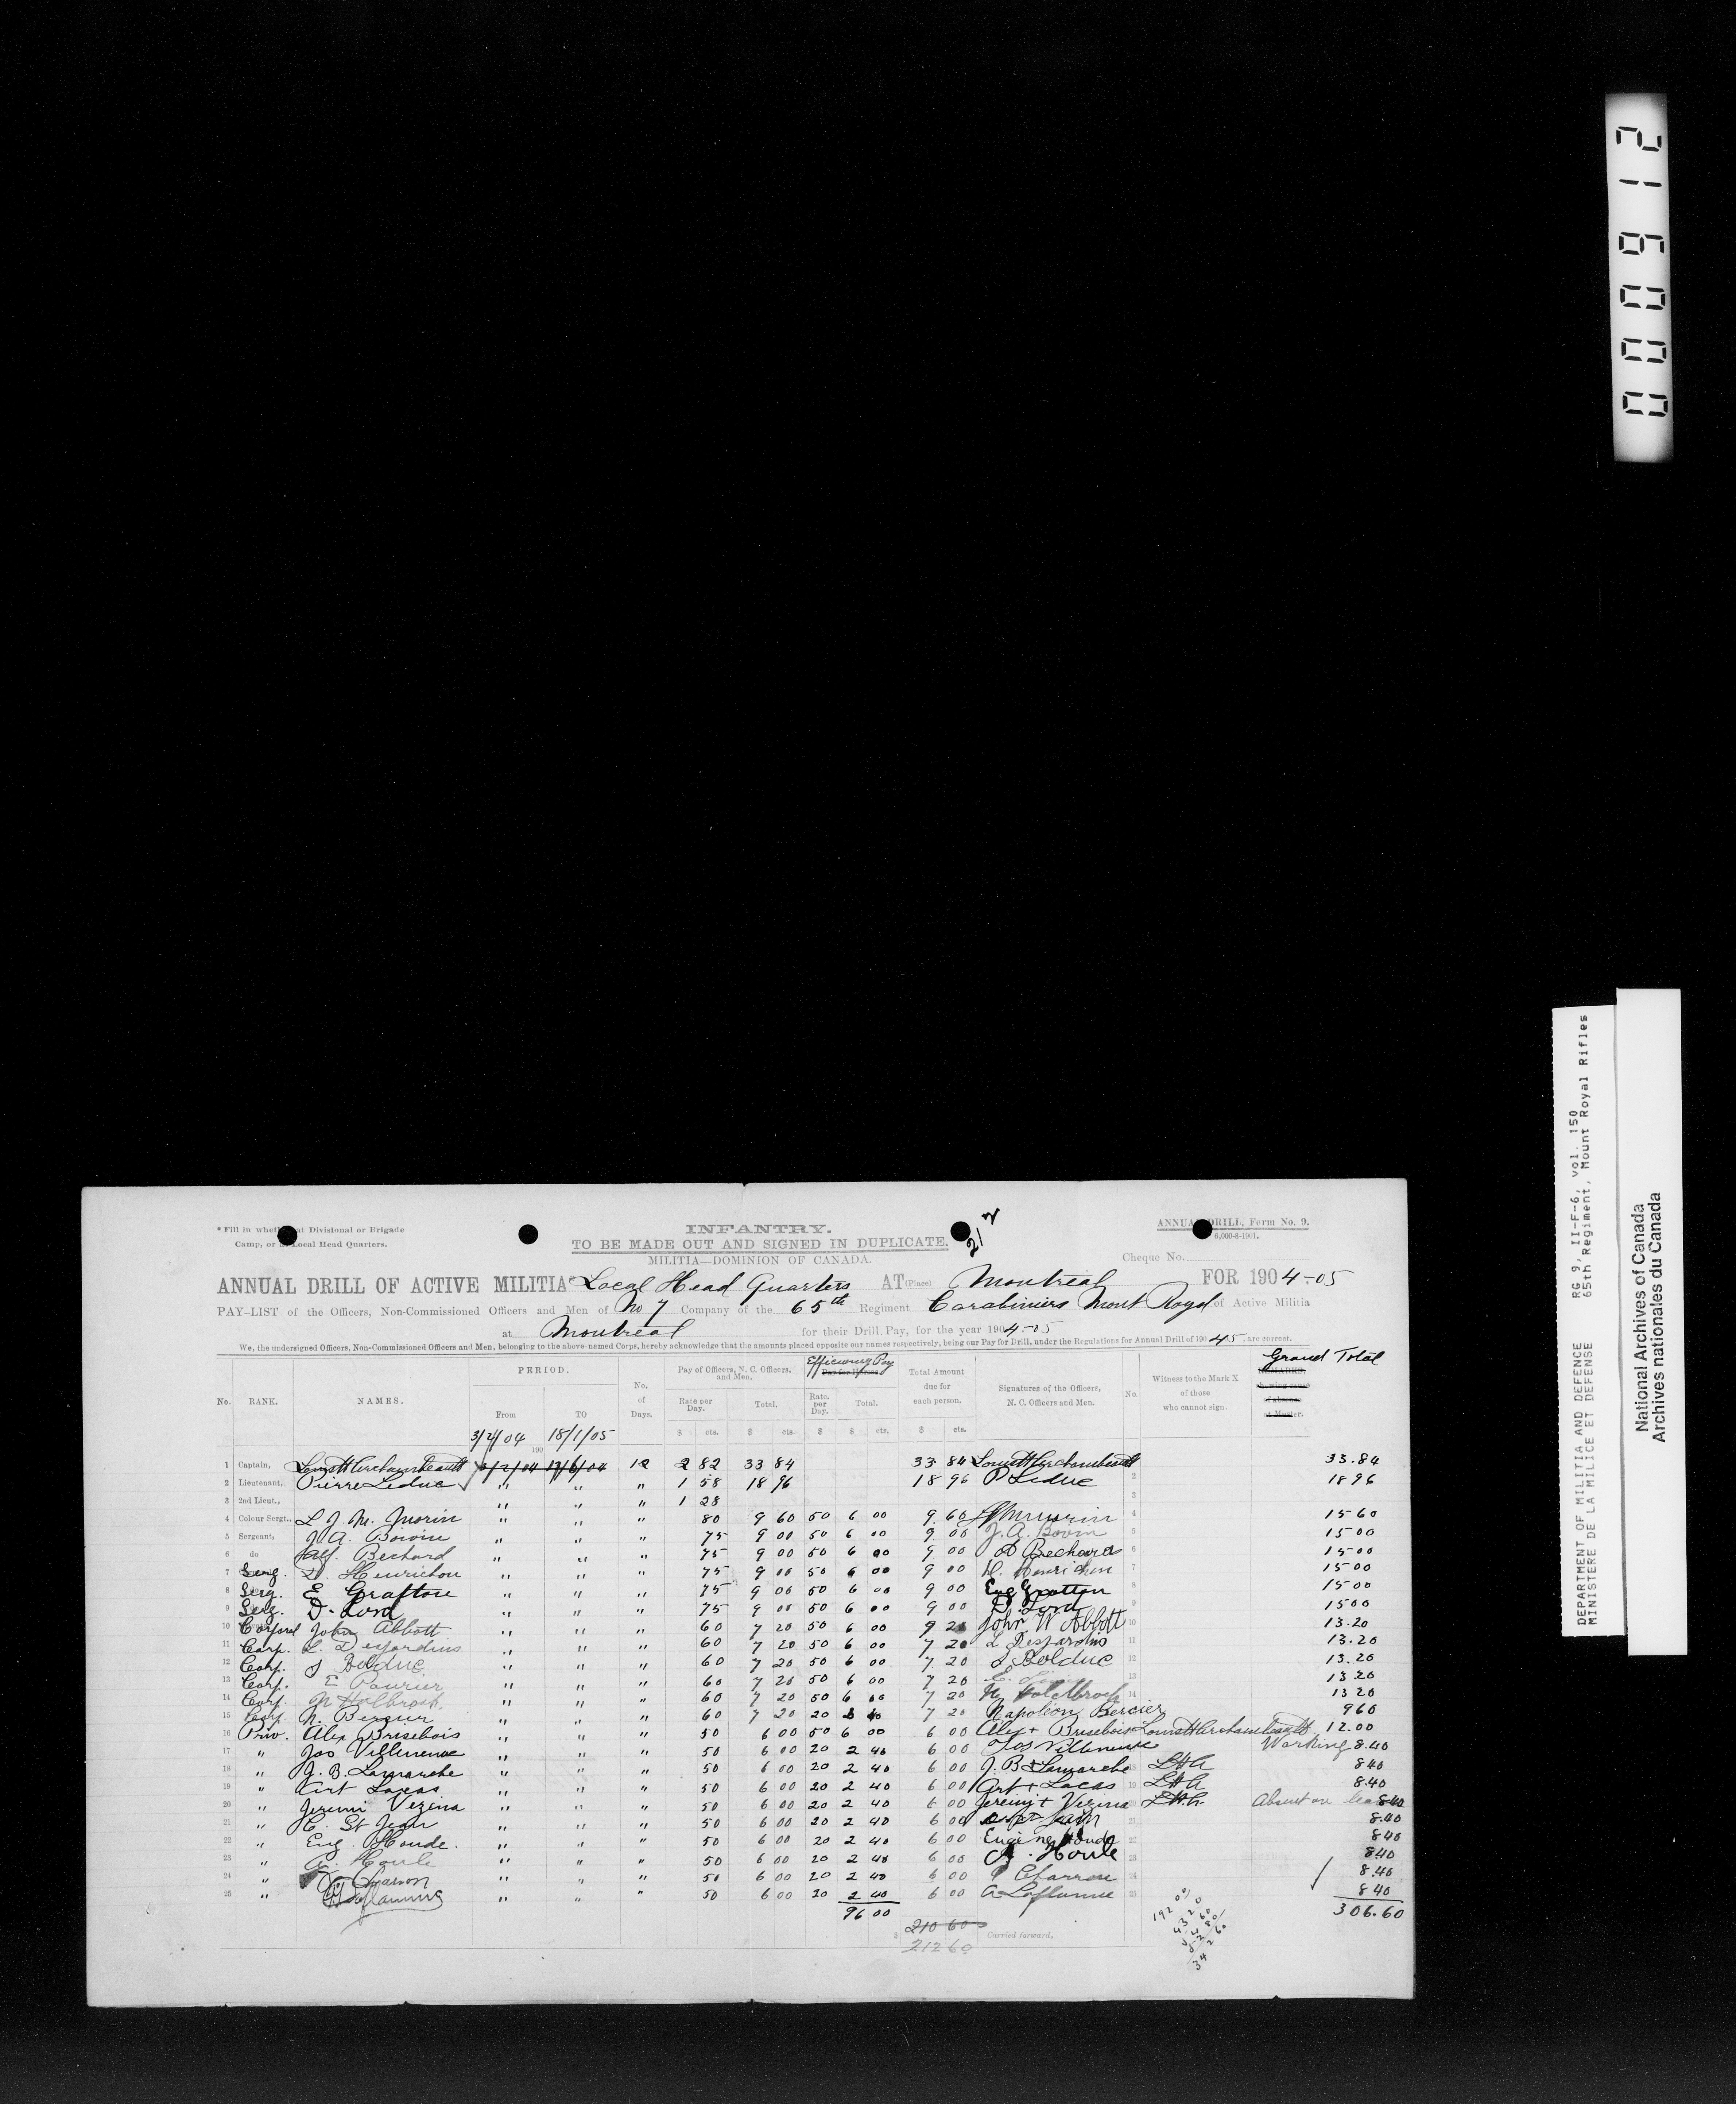 00912
* Fill in whether at Divisional or Brigade
Camp, or at Local Head Quarters.
INFANTRY.
TO BE MADE OUT AND SIGNED IN DUPLICATE.
MILITIA—DOMINION OF CANADA.
212
ANNUAL DRILL, Form No. 9.
6,000-8-1901.
Cheque No.
ANNUAL DRILL OF ACTIVE MILITIA* Local Head Quarters AT (Place) Montreal FOR 1904-05
PAY-LIST of the Officers, Non-Commissioned Officers and Men of No 7 Company of the 65th Regiment Carabiniers Mont Royal of Active Militia
at Montreal for their Drill Pay, for the year 1904-05
We, the undersigned Officers, Non-Commissioned Officers and Men, belonging to the above-named Corps, hereby acknowledge that the amounts placed opposite our names respectively, being our Pay for Drill, under the Regulations for Annual Drill of 190 45, are correct.
No. RANK. NAMES. PERIOD. From 3/2/04 190 TO 18/1/05 No. of Days. Pay of Officers, N. C. Officers, and Men. Rate per Day. $ cts. Total. $ cts. Efficiency Pay Rate per Day. $ Total. $ cts. Total Amount due for each person. $ cts. Signatures of the Officers, N. C. Officers and Men. No. Witness to the Mark X of those who cannot sign. Grand Total
1 Captain, Louis H Archambeault 3/2/04 12 2 82 33 84 33 84 Louis H Archambeault 33.84
2 Lieutenant, Pierre Leduc " " " 1 58 18 96 18 96 P Leduc 2 18 96
3 2nd Lieut., " " " 1 28 3
4 Colour Sergt., L J. M. Morin " " " 80 9 60 50 6 00 9 60 4 15 60
5 Sergeant, J. A. Boivin " " " 75 9 00 50 6 00 9 00 J. A. Boivin 5 15 00
6 do Alf. Bechard " " " 75 9 00 50 6 00 9 00 A Bechard 6 15 00
7 Serg. D. Henrichon " " " 75 9 00 50 6 00 9 00 D. Henrichon 7 15 00
8 Serg. E Grafton " " " 75 9 00 50 6 00 9 00 Eug Gratton 8 15 00
9 Serg. D. Lord " " " 75 9 00 50 6 00 9 00 D. Lord 9 15 00
10 Corporal John Abbott " " " 60 7 20 50 6 00 9 20 John W Abbott 10 13.20
11 Corp. L. Desjardins " " " 60 7 20 50 6 00 7 20 L Desjardins 11 13.20
12 Corp. J Bolduc " " " 60 7 20 50 6 00 7 20 J Bolduc 12 13.20
13 Corp. E " " " 60 7 20 50 6 00 7 20 E. 13 13 20
14 Corp. N Holbrook " " " 60 7 20 50 6 00 7 20 N Holdbrook 14 13 20
15 Corp. N. Bercier " " " 60 7 20 20 2 40 7 20 Napoleon Bercier 9 60
16 Priv. Alex Brisebois " " " 50 6 00 50 6 00 6 00 Alex + Brisebois Louis H Archambeault 12.00
17 " Jos Villeneuve " " " 50 6 00 20 2 40 6 00 Jos Villeneuve Working 8.40
18 " J. B. Lamarche " " " 50 6 00 20 2 40 6 00 J. B + Lamarche LHA 8 40
19 " Art Lucas " " " 50 6 00 20 2 40 6 00 Art + Lucas 19 LHA 8.40
20 " Jeremi Vezina " " " 50 6 00 20 2 40 6 00 Jeremy + Vezina LHA Absent on leave 8 40
21 " C. St Jean " " " 50 6 00 20 2 40 6 00 21 8.40
22 " Eug. Houde. " " " 50 6 00 20 2 40 6 00 Eugene Houde 22 8 40
23 " A. Houle " " " 50 6 00 20 2 40 6 00 A. Houle 23 8 40
24 " " " " 50 6 00 20 2 40 6 00 Charron 24 8.40
25 " Laflamme " " " 50 6 00 20 2 40 6 00 A Laflamme 25 8 40
96 00 306.60
$ 210 60 Carried forward.
212 60
DEPARTMENT OF MILITIA AND DEFENCE RG 9, II-F-6, vol. 150
MINISTERE DE LA MILICE ET DEFENSE 65th Regiment, Mount Royal Rifles
National Archives of Canada
Archives nationales du Canada